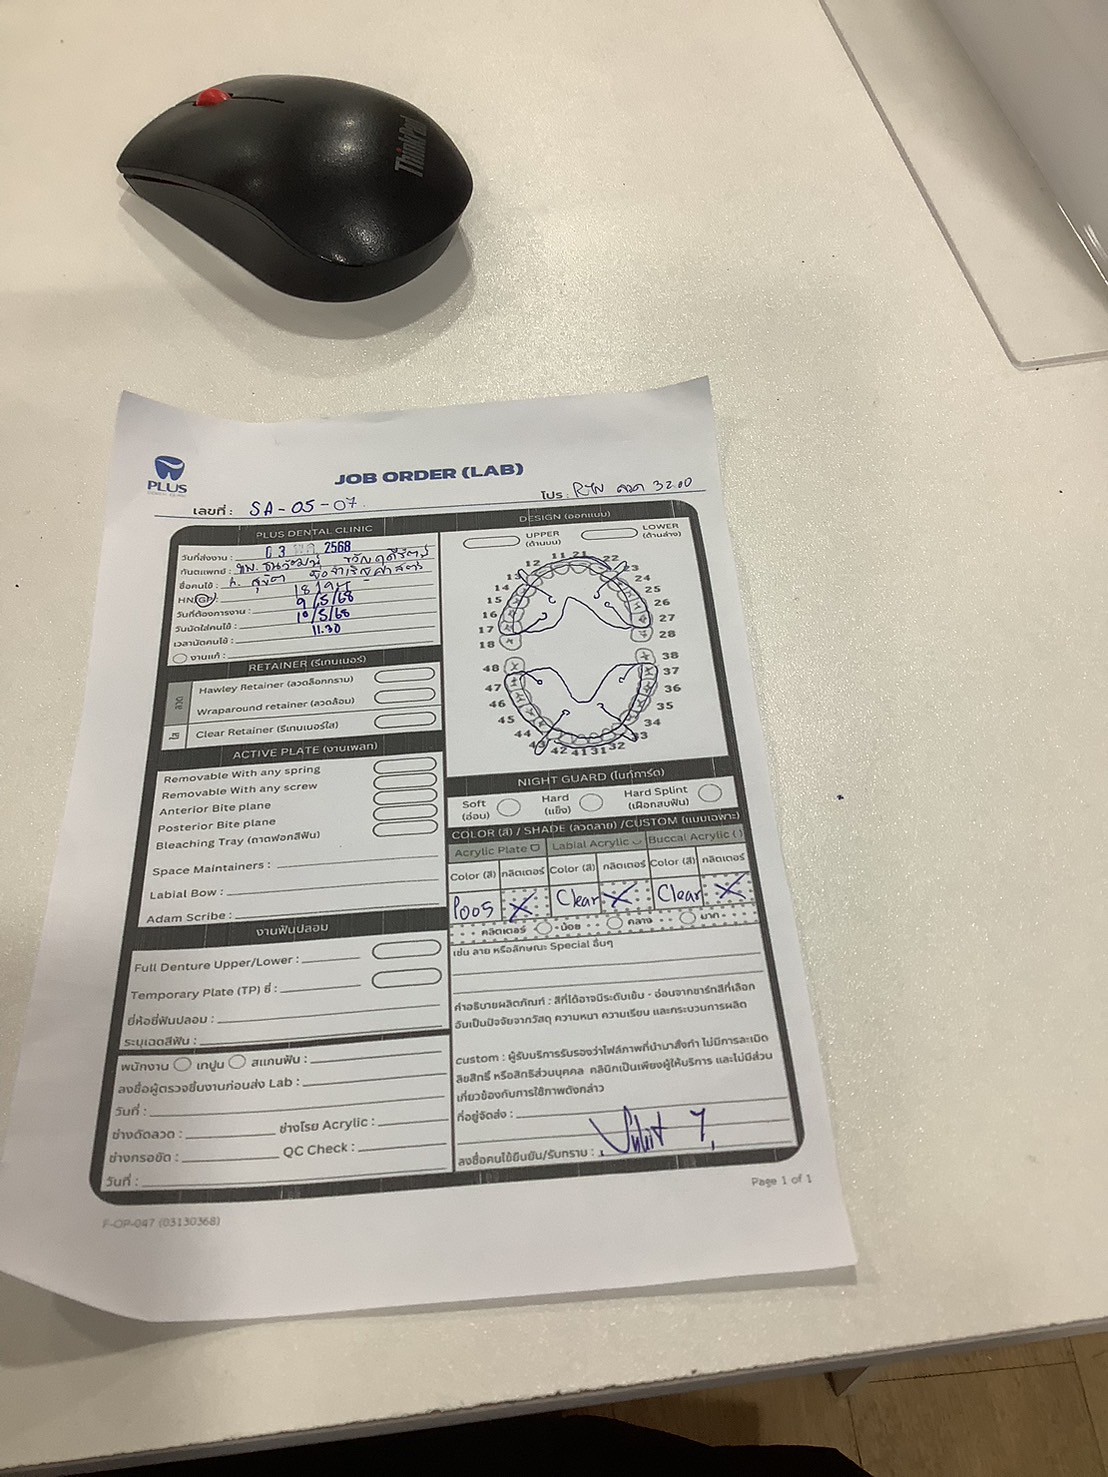 ThinkPad
PLUS
DENTAL CLINIC
JOB ORDER (LAB)
เลขที่ : SA-05-07
โปร : RTN ลวด 3200
PLUS DENTAL CLINIC
วันที่ส่งงาน : 03 พ.ค. 2568
ทันตแพทย์ : ทพ.
ชื่อคนไข้ :
HN/GN:
วันที่ต้องการงาน : 9/5/68
วันนัดใส่คนไข้ : 10/5/68
เวลานัดคนไข้ : 11.30
งานแก้ :
RETAINER (รีเทนเนอร์)
ลวด
Hawley Retainer (ลวดล็อกกราม)
Wraparound retainer (ลวดล้อม)
ใส
Clear Retainer (รีเทนเนอร์ใส)
ACTIVE PLATE (งานเพลท)
Removable With any spring
Removable With any screw
Anterior Bite plane
Posterior Bite plane
Bleaching Tray (ถาดฟอกสีฟัน)
Space Maintainers :
Labial Bow :
Adam Scribe :
งานฟันปลอม
Full Denture Upper/Lower :
Temporary Plate (TP) ซี่ :
ยี่ห้อซี่ฟันปลอม :
ระบุเฉดสีฟัน :
พนักงาน เทปูน สแกนฟัน :
ลงชื่อผู้ตรวจชิ้นงานก่อนส่ง Lab :
วันที่ :
ช่างดัดลวด : ช่างโรย Acrylic :
ช่างกรอขัด : QC Check :
วันที่ :
DESIGN (ออกแบบ)
UPPER (ด้านบน)
LOWER (ด้านล่าง)
11 21
12 22
13 23
14 24
15 25
16 26
17 27
18 28
48 38
47 37
46 36
45 35
44 34
43 42 41 31 32 33
NIGHT GUARD (ไนท์การ์ด)
Soft (อ่อน)
Hard (แข็ง)
Hard Splint (เฝือกสบฟัน)
COLOR (สี) / SHADE (ลวดลาย) /CUSTOM (แบบเฉพาะ)
Acrylic Plate Labial Acrylic Buccal Acrylic ( )
Color (สี) กลิตเตอร์ Color (สี) กลิตเตอร์ Color (สี) กลิตเตอร์
P005 X Clear X Clear X
กลิตเตอร์ น้อย กลาง มาก
เช่น ลาย หรือลักษณะ Special อื่นๆ
คำอธิบายผลิตภัณฑ์ : สีที่ได้อาจมีระดับเข้ม - อ่อนจากชาร์ทสีที่เลือก
อันเป็นปัจจัยจากวัสดุ ความหนา ความเรียบ และกระบวนการผลิต
custom : ผู้รับบริการรับรองว่าไฟล์ภาพที่นำมาสั่งทำ ไม่มีการละเมิด
ลิขสิทธิ์ หรือสิทธิส่วนบุคคล คลินิกเป็นเพียงผู้ให้บริการ และไม่มีส่วน
เกี่ยวข้องกับการใช้ภาพดังกล่าว
ที่อยู่จัดส่ง :
ลงชื่อคนไข้ยืนยัน/รับทราบ :
F-OP-047 (03130368)
Page 1 of 1